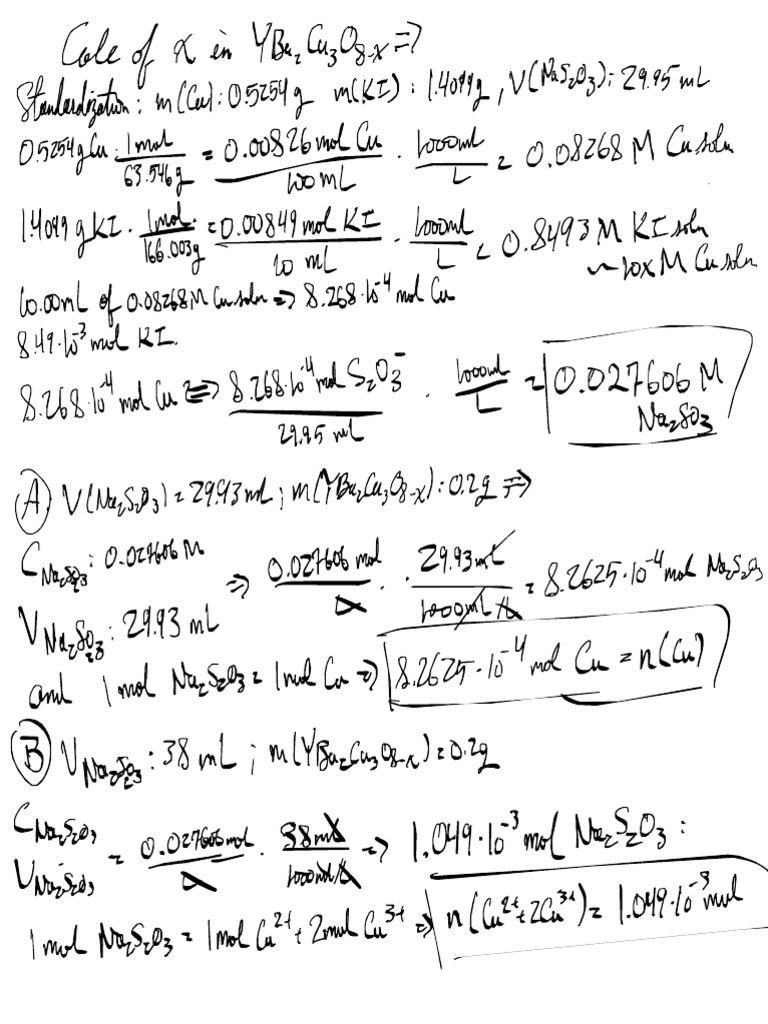 Calc of x in YBa₂Cu₃O₈₋ₓ ⇒
Standardization: m(Cu): 0.5254g m(KI): 1.4099g, V(Na₂S₂O₃): 29.95 mL
0.5254g Cu · 1 mol / 63.546g = 0.00826 mol Cu / 100 mL · 1000mL / L = 0.08268 M Cu soln
1.4099 g KI · 1 mol / 166.003g = 0.00849 mol KI / 10 mL · 1000mL / L = 0.8493 M KI soln
~10x M Cu soln
10.00mL of 0.08268M Cu soln ⇒ 8.268·10⁻⁴ mol Cu
8.49·10⁻³ mol KI.
8.268·10⁻⁴ mol Cu ⇒ 8.268·10⁻⁴ mol S₂O₃⁻ / 29.95 mL · 1000mL / L = 0.027606 M Na₂SO₃
A) V(Na₂S₂O₃) = 29.93 mL; m(YBa₂Cu₃O₈₋ₓ): 0.2g ⇒
C Na₂S₂O₃: 0.027606 M ⇒ 0.027606 mol / L · 29.93 mL / 1000mL/L = 8.2625·10⁻⁴ mol Na₂S₂O₃
V Na₂S₂O₃: 29.93 mL
and 1 mol Na₂S₂O₃ = 1 mol Cu ⇒ 8.2625·10⁻⁴ mol Cu = n(Cu)
B) V Na₂S₂O₃: 38 mL; m(YBa₂Cu₃O₈₋ₓ) = 0.2g
C Na₂S₂O₃ V Na₂S₂O₃ = 0.027606 mol / L · 38 mL / 1000mL/L ⇒ 1.049·10⁻³ mol Na₂S₂O₃:
1 mol Na₂S₂O₃ = 1 mol Cu²⁺ + 2 mol Cu³⁺ ⇒ n(Cu²⁺ + 2Cu³⁺) = 1.049·10⁻³ mol